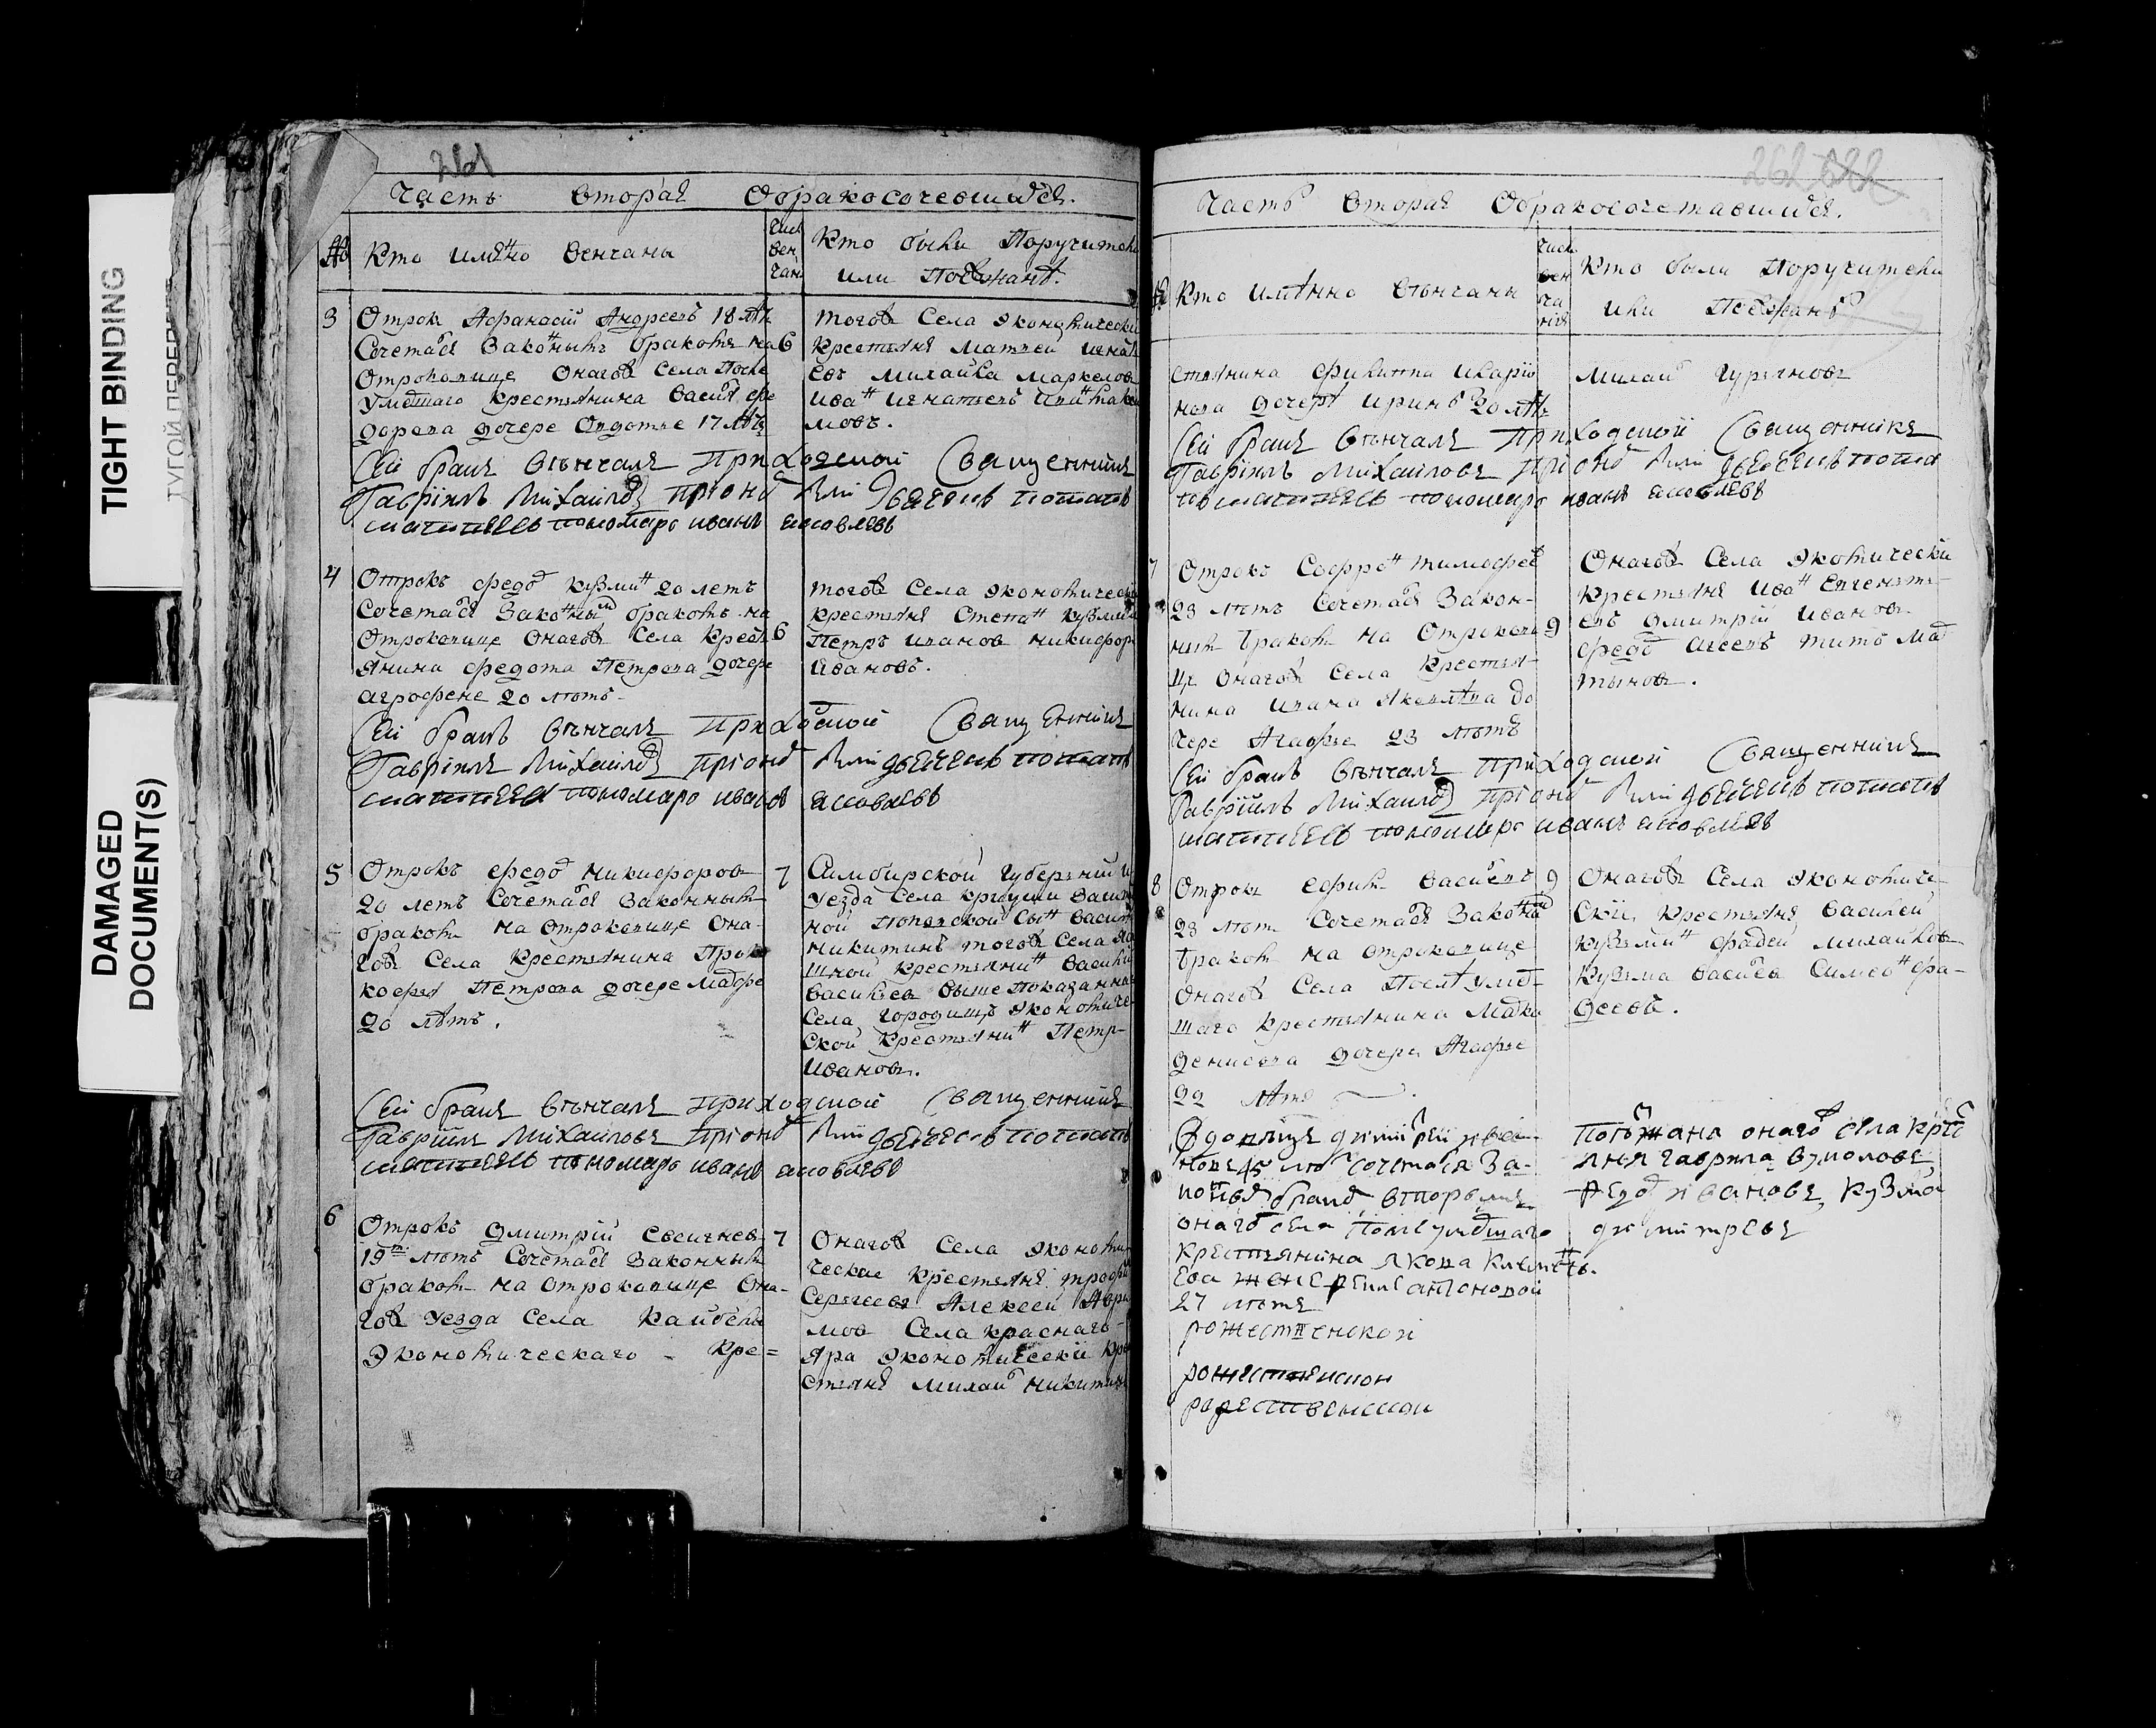 TIGHT BINDING
ТУГОЙ ПЕРЕПЛ
DAMAGED
DOCUMENT(S)
261
Часть вторая Обракосочевшихся.
№ Кто имяно венчаны
Кто были Поручители
или Поезжанѣ.
3
Отрок Афанасий Андреевъ 18 лѣтъ
Сочетался законымъ бракомъ на 6
Отроковице онагов Села После
умершаго крестьянина Василя Фе
дорова дочере Овдотье 17 лѣтъ
тогов Села экономически
крестьяня Матвей Игнать
евъ Михайла Маркелов
Иванъ Игнатьевъ
мовъ.
Сей бракъ вѣнчалъ Приходской Священникъ
Гавріилъ Михаиловъ при ономъ были дьячекъ потапъ
матвеевъ пономарь иванъ яковлевъ
4
Отрокъ Федотъ Кузминъ 20 летъ
Сочетался Законнымъ бракомъ на
Отроковице Онагов Села Крест 6
янина Федота Петрова дочере
Агрофене 20 лѣтъ
тогов Села экономически
крестьяня Степанъ Кузмин
Петръ Иванов Никифор
Ивановъ.
Сей бракъ вѣнчалъ Приходской Священникъ
Гавріилъ Михаиловъ при ономъ были дьячекъ потапъ
матвеевъ пономарь иванъ яковлевъ
5
Отрокъ Федотъ Никифоров 7
20 летъ Сочетался Законнымъ
бракомъ на отроковице Она-
гов Села Крестьянина Про
кофья Петрова дочере Марфе
20 лѣтъ.
Симбирской Губерний и
уезда Села Криуши Васил
ной Поповской Сынъ Васил
Никитинъ тогов Села Я
шной крестьянинъ Василий
Васильев выше показанна
Села Городищъ экономиче
ской крестьянинъ Петр
Иванов.
Сей бракъ вѣнчалъ приходской Священникъ
Гавріилъ Михаиловъ при ономъ были дьячекъ потапъ
матвеевъ пономарь иванъ яковлевъ
6
Отрокъ Дмитрій Евсигнев 7
19ти лѣтъ Сочетался Законнымъ
бракомъ на отроковице Она-
гов уезда Села Кайбелы
Экономическаго - Кре=
Онагов Села экономи
ческие крестьяня: трофи
Сергеевъ Алексей Авра
мов Села Краснагов
Яра экономически кре
стьянѣ Михайла Никитин
262 622
Часть вторая Обракосочетавшихся.
№ Кто имѣнно вѣнчаны
Кто были Поручители
или Поезжанѣ
стьянина Филиппа Иларио
нова дочерѣ Иринѣ 20 лѣтъ
Михаила Гурьянов
Сей бракъ вѣнчалъ Приходской Священникъ
Гавріилъ Михаиловъ при ономъ были дьячекъ потапъ
матвеевъ пономарь иванъ яковлевъ
7
Отрокъ Софронъ Тимофеев
23 лѣтъ Сочетался Закон-
нымъ бракомъ на Отрокови 9
це Онагов Села Крестья-
нина Ивана Яковлева до
чере Агафье 23 лѣтъ
Онагов Села экономически
Крестьяня Иванъ Евгеньть-
евъ Дмитрій Иванов
Федотъ Агеевъ Титъ Мар
тынов.
Сей бракъ вѣнчалъ приходской Священникъ
Гавріилъ Михаиловъ при ономъ были дьячекъ потапъ
матвеевъ пономарь иванъ яковлевъ
8
Отрок Ефим Васильевъ 9
23 лѣтъ Сочетался Законнымъ
бракомъ на отроковице
Онагов Села Послѣ умер-
шаго крестьянина Марки
Денисова дочере Агафье
22 лѣтъ
Онагов Села экономиче
ский крестьяня Василей
Кузьминъ Фадей Михайлов
Кузьма Васильев Симеонъ Фа-
деевъ.
вдовецъ димитрей ива-
новъ 45 лѣт сочетался за-
конымъ бракомъ вторымъ
онаго села После умершаго
крестьянина якова климентъ.
ева жене антоновой
27 лѣтъ
Поезжана онаго села крест
яня гаврила ермоловъ,
Федотъ ивановъ, кузма
димитревъ
рожественской
рожественской
рожественской